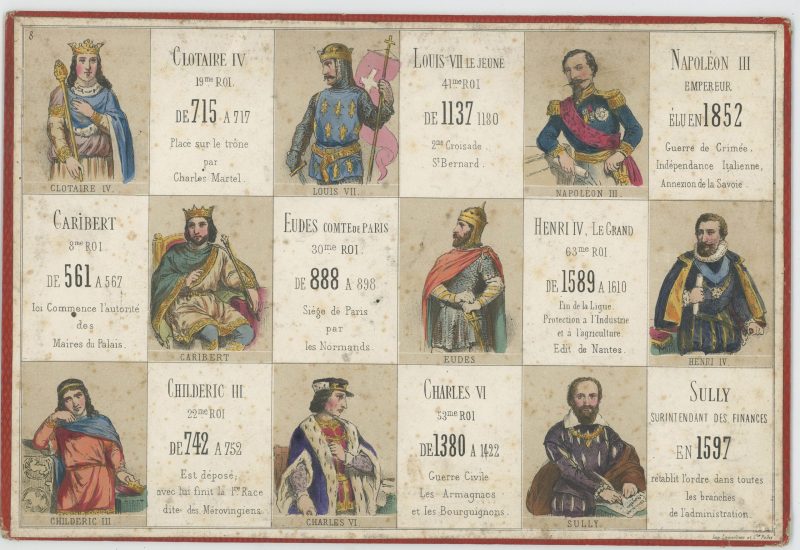 8
CLOTAIRE IV.
CLOTAIRE IV
19me ROI.
DE 715 A 717
Place sur le trône
par
Charles Martel.
LOUIS VII.
LOUIS VII LE JEUNE
41me ROI
DE 1137 1180
2me Croisade
St Bernard.
NAPOLEON III.
NAPOLÉON III
EMPEREUR
ÉLU EN 1852
Guerre de Crimée.
Indépendance Italienne,
Annexon de la Savoie.
CARIBERT
8me ROI
DE 561 A 567
Ici Commence l'autorité
des
Maires du Palais.
CARIBERT
EUDES COMTE DE PARIS
30me ROI.
DE 888 A 898
Siége de Paris
par
les Normands
EUDES
HENRI IV, LE GRAND
63me ROI.
DE 1589 A 1610
Fin de la Ligue.
Protection a l'Industrie
et à l'agriculture
Edit de Nantes.
HENRI IV.
CHILDERIC III
CHILDERIC III.
22me ROI
DE 742 A 752
Est déposé;
avec lui finit la 1re Race
dite des Mérovingiens.
CHARLES VI
CHARLES VI
53me ROI
DE 1380 A 1422
Guerre Civile
Les Armagnacs
et les Bourguignons.
SULLY.
SULLY
SURINTENDANT DES FINANCES
EN 1597
rétablit l'ordre dans toutes
les branches
de l'administration.
Imp. et Cie Paris